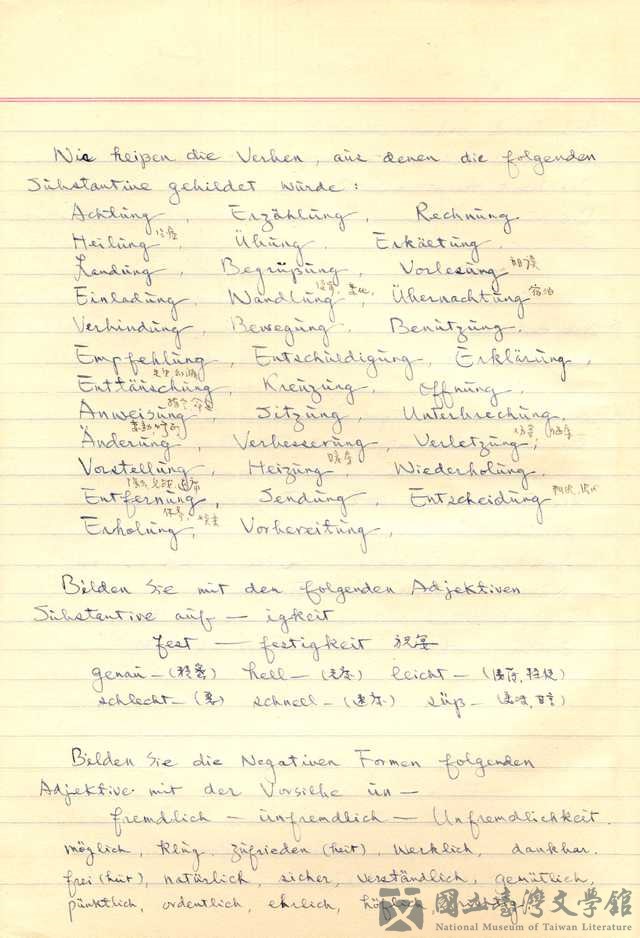 Wie heißen die Verben, aus denen die folgenden
Substantive gebildet wurde:
Achtung, Erzählung, Rechnung.
Heilung 治療, Übung, Erkältung.
Landung, Begrüßung, Vorlesung 朗读
Einladung, Wandlung, 变化, Übernachtung 宿泊
Verbindung, Bewegung, Benützung.
Empfehlung, Entschuldigung, Erklärung,
Enttäuschung, Kreuzung, Öffnung,
Anweisung, Sitzung, Unterbrechung,
Änderung, Verbesserung, Verletzung,
Vorstellung, Heizung, Wiederholung.
Entfernung, Sendung, Entscheidung
Erholung, Vorbereitung,
Bilden Sie mit den folgenden Adjektiven
Substantive auf — igkeit
fest — festigkeit 祝宴
genau — hell — leicht —
schlecht — (悪) schnell — süß —
Bilden Sie die Negativen Formen folgenden
Adjektive mit der Vorsilbe un —
fremdlich — unfremdlich — Unfremdlichkeit.
möglich, klug, zufrieden (heit), werklich, dankbar.
frei (heit), natürlich, sicher, verständlich, gemütlich,
pünktlich, ordentlich, ehrlich, höflich,
國立臺灣文學館
National Museum of Taiwan Literature